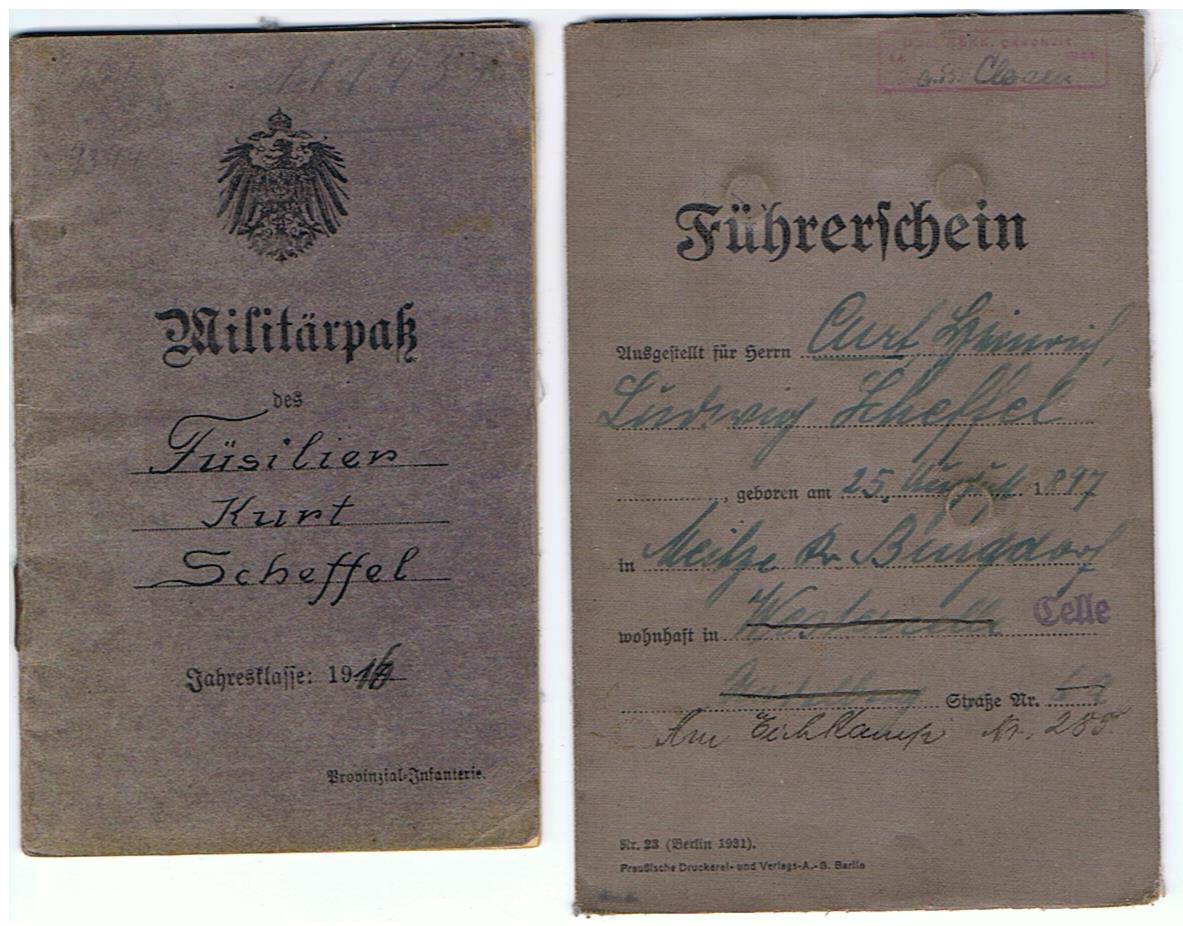 Militärpaß
des
Füsilier
Kurt
Scheffel
Jahresklasse: 1916
Provinzial-Infanterie.
Führerschein
Ausgestellt für Herrn Curt Heinrich
Ludwig Scheffel
, geboren am 25. August 1897
in Meitze Kr Burgdorf
wohnhaft in Westercelle Celle
Straße Nr.
Am Eichkamp Nr. 285.
Nr. 23 (Berlin 1931).
Preußische Druckerei- und Verlags-A.-G. Berlin